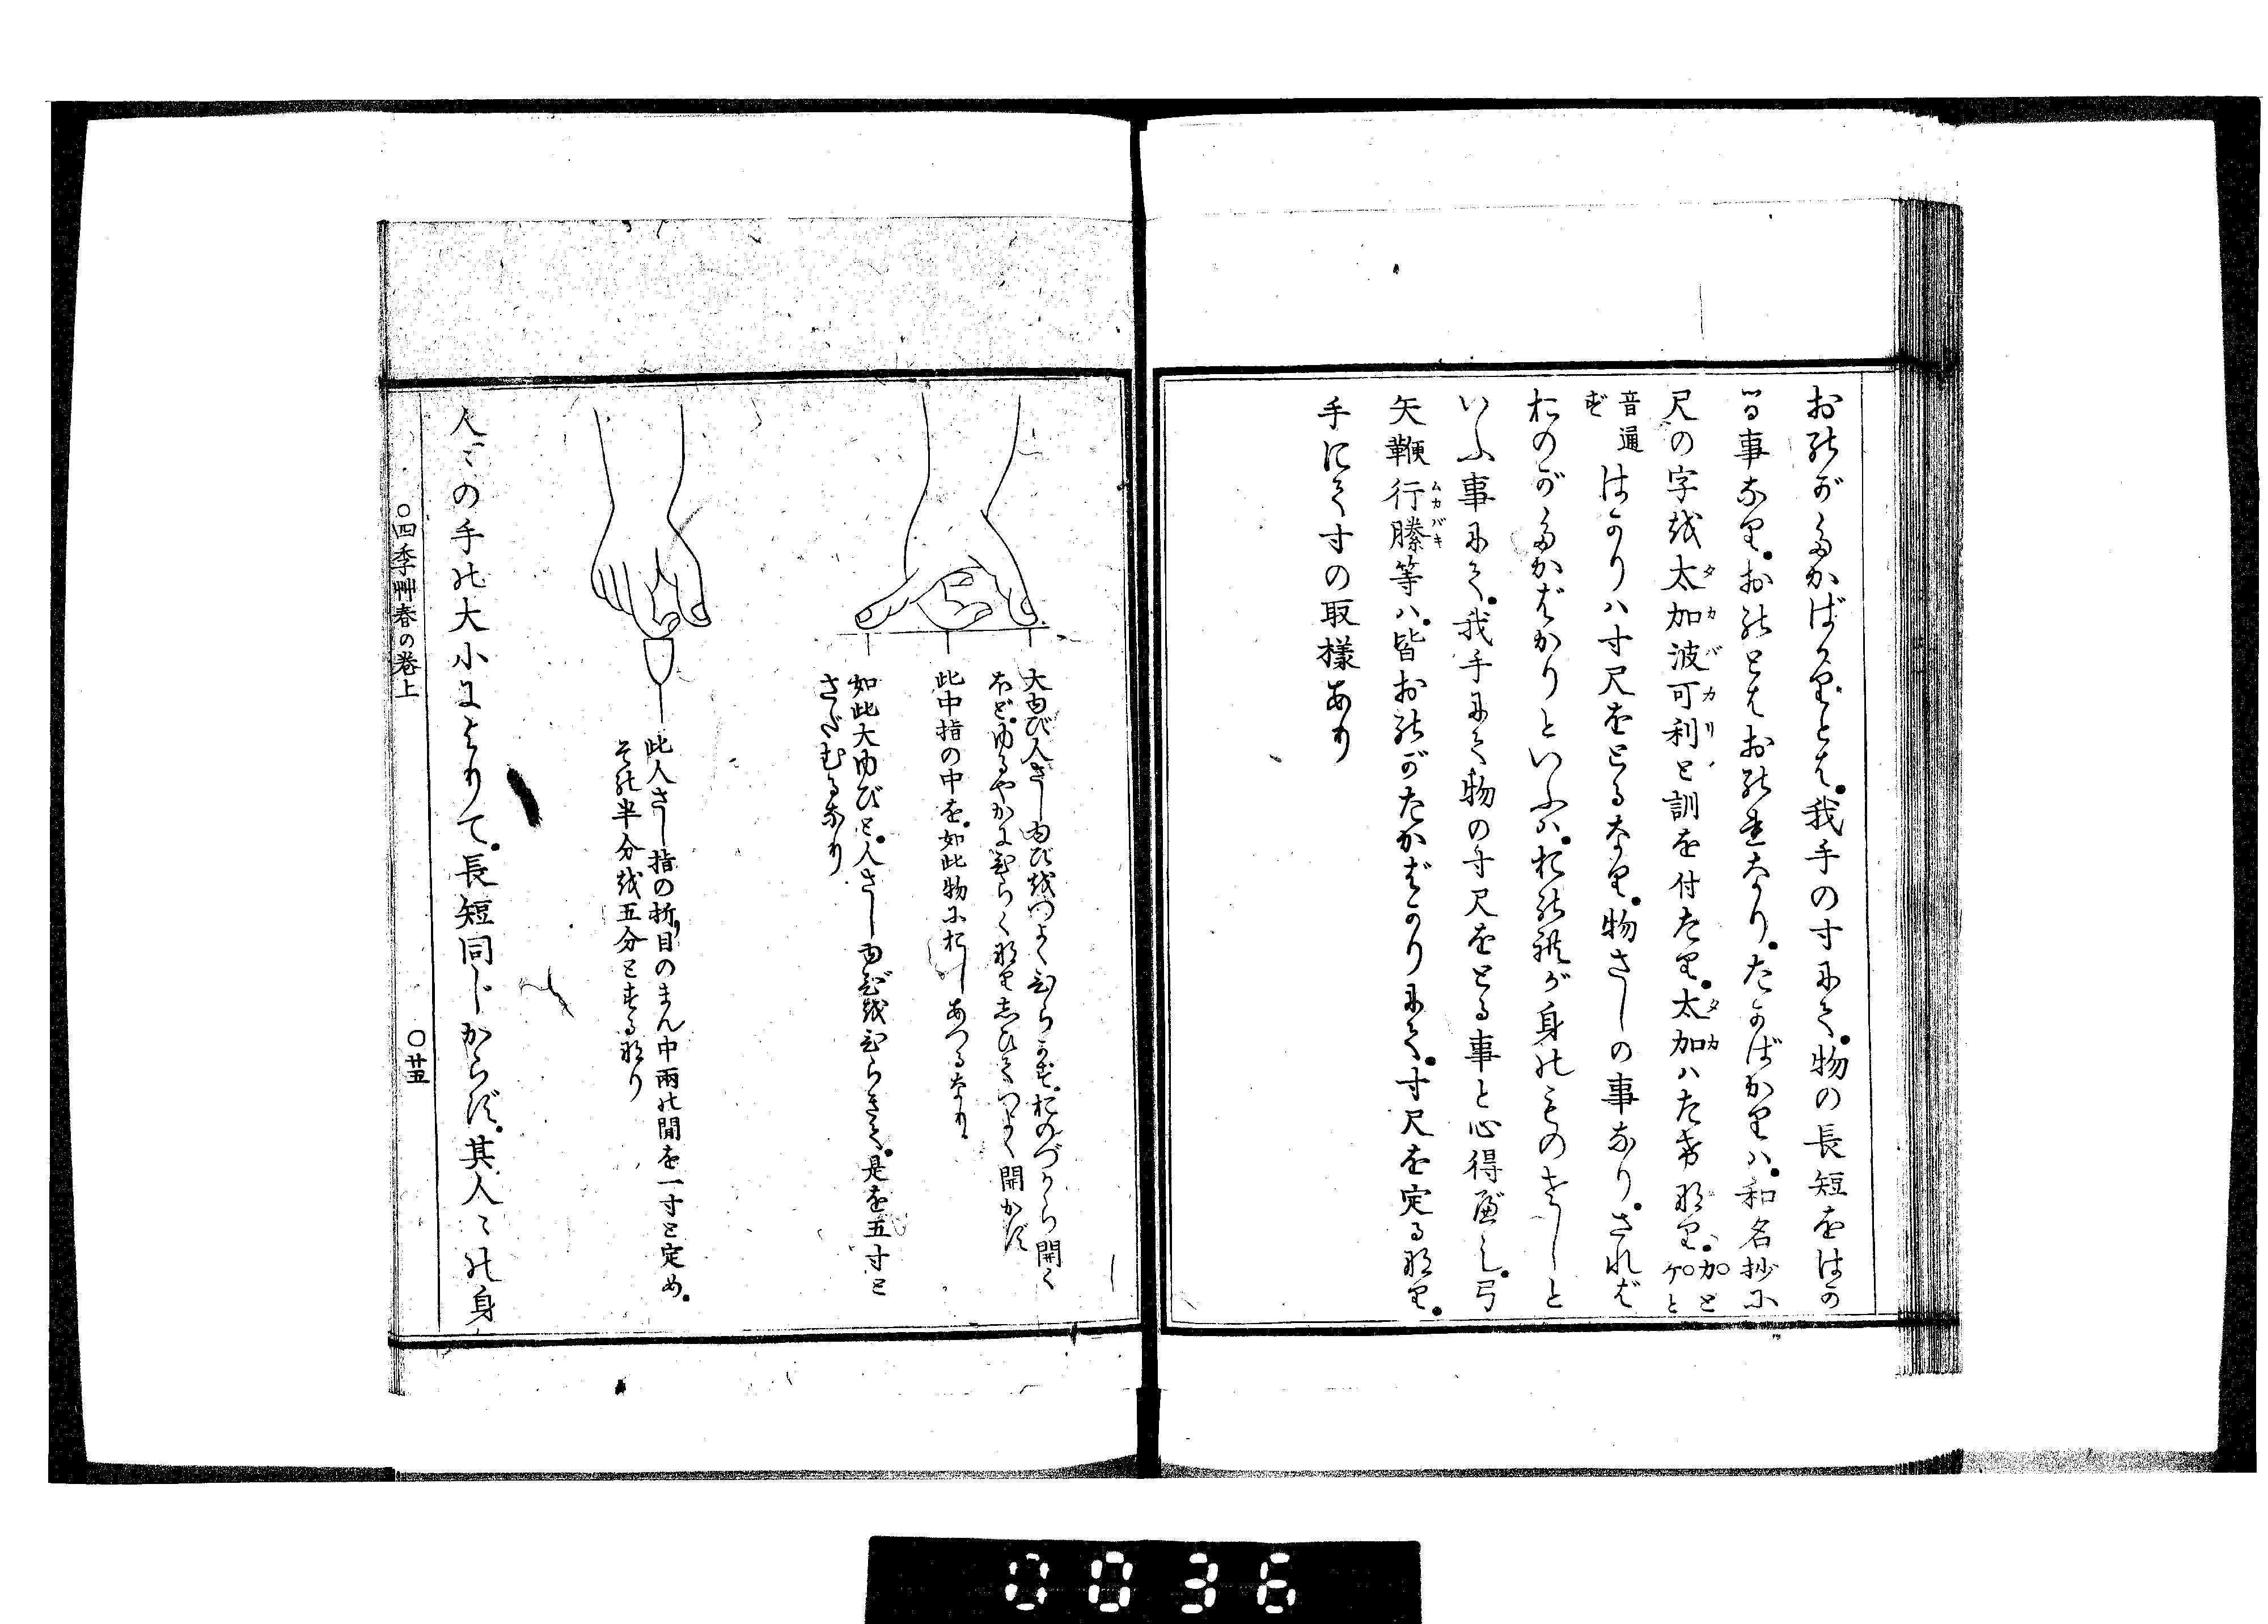 おのがたかばかりとは。我手の寸にて。物の長短をはか
る事なり。おのとはおのれ也。たかばかりは。和名抄に
尺の字を太加波可利と訓を付たり。太加ハたけなり。カとケと
音通ず
はかりハ寸尺をとるなり。物さしの事なり。されば
おのがたかばかりといふハ。おのれが身のものさしと
いふ事にて。我手にて物の寸尺をとる事と心得べし。弓
矢鞭行縢等ハ。皆おのがたかばかりにて。寸尺を定る也。
手にて寸の取様あり
大ゆび人さしゆびをつよくひらかず。おのづから開く
ほど。ゆるやかにひらく也しひてつよく開かず
此中指の中を。如此物におしあつるなり
如此大ゆびと。人さしゆびをひらきて。是を五寸と
さだむるなり
此人さし指の折目のまん中両の間を一寸と定め。
その半分を五分とする也
人々の手の大小によりて。長短同じからず。其人々の身
○四季艸春の巻上
○廿五
ムカバキ
タカバカリ
タカ
0036